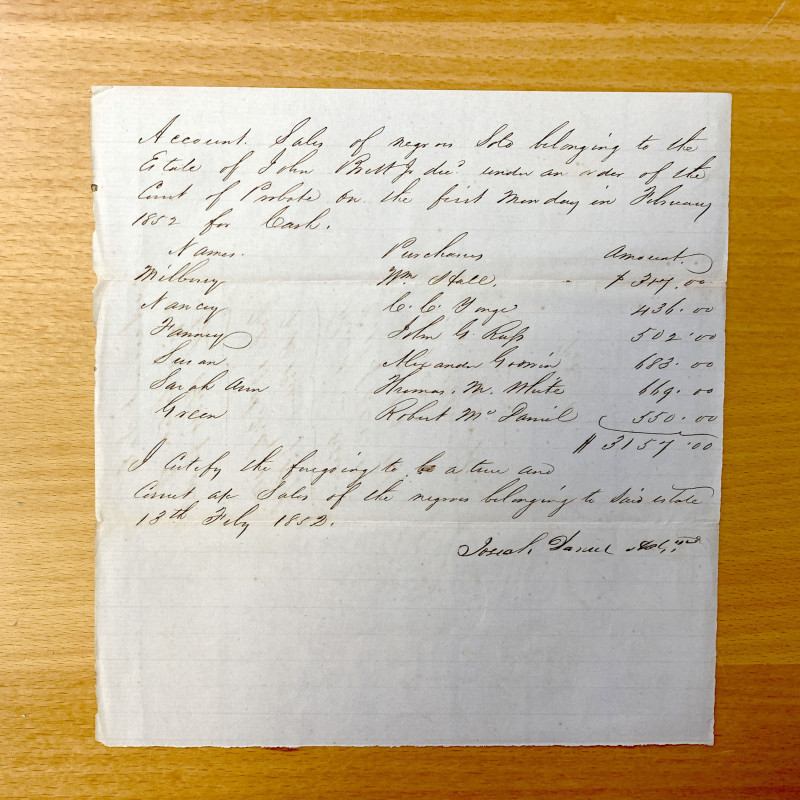 Account Sales of negros Sold belonging to the
Estate of John Brett Jr decd under an order of the
Court of Probate on the first monday in February
1852 for Cash.
Names. Purchasers Amount
Milbury Wm Hall. $ 317.00
Nancy C. C. Yonge 436.00
Fanney John G. Russ 502.00
Susan Alexander Godwin 683.00
Sarah Ann Thomas. M. White 669.00
Green Robert McDaniel 550.00
$ 3157.00
I certify the foregoing to be a true and
Correct a/c Sales of the negros belonging to said estate
13th Feby 1852.
Josiah Daniel